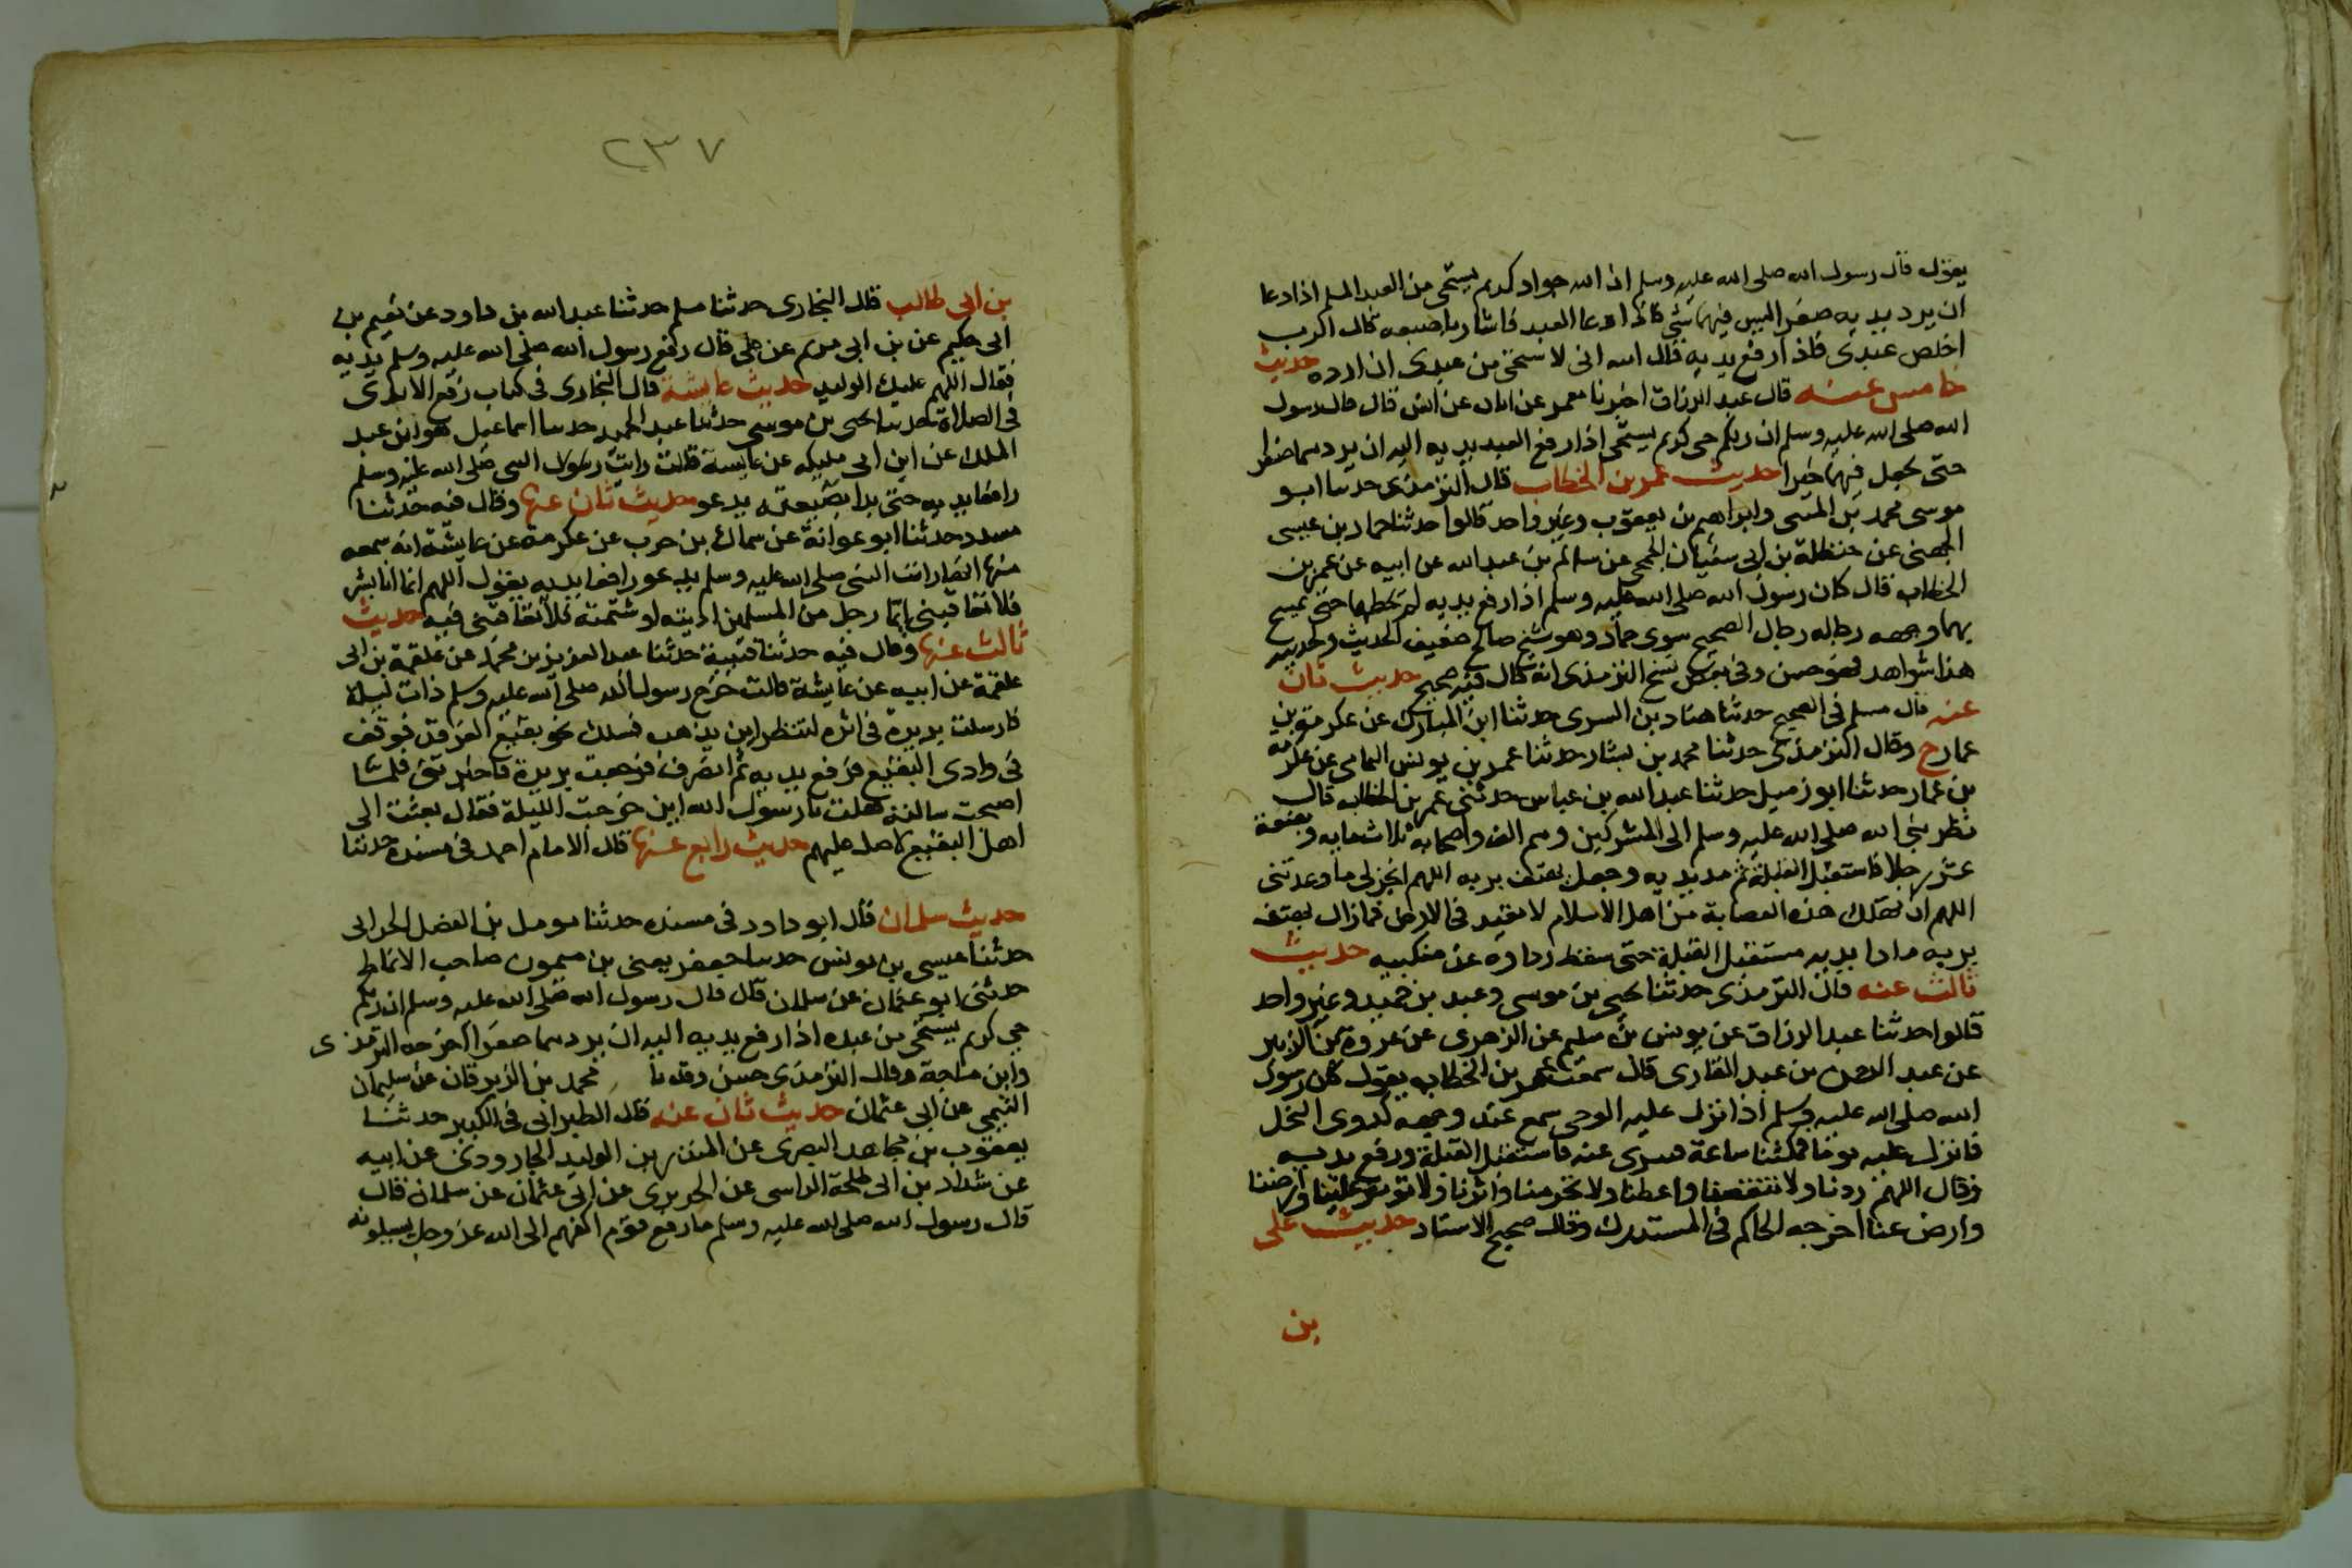 يقول قال رسول الله صلى الله عليه وسلم ان الله جواد كريم يستحي من العبد المسلم اذا دعا
ان يرد يديه صفرا ليس فيهما شي فاذا دعا العبد فاشار باصبعه قال الرب
اخلص عبدى فاذا رفع يديه قال الله انى لاستحى من عبدى ان ارده حديث
خامس عنه قال عبد الرزاق اخبرنا معمر عن ابان عن انس قال قال رسول
الله صلى الله عليه وسلم ان ربكم حى كريم يستحى اذا رفع العبد يديه اليه ان يردهما صفرا
حتى يجعل فيهما خيرا حديث عمر بن الخطاب قال الترمذى حدثنا ابو
موسى محمد بن المثنى وابراهيم بن يعقوب وغير واحد قالوا حدثنا حماد بن عيسى
الجهنى عن حنظلة بن ابى سفيان الجمحى عن سالم بن عبد الله عن ابيه عن عمر بن
الخطاب قال كان رسول الله صلى الله عليه وسلم اذا رفع يديه لم يحطهما حتى يمسح
بهما وجهه رجاله رجال الصحيح سوى حماد وهو شيخ صالح ضعيف الحديث ولحديثه
هذا شواهد فهو حسن وفى بعض نسخ الترمذى انه قال فيه صحيح حديث ثان
عنه قال مسلم فى الصحيح حدثنا هناد بن السرى حدثنا ابن المبارك عن عكرمة بن
عمار ح وقال الترمذى حدثنا محمد بن بشار حدثنا عمر بن يونس اليمامى عن عكرمه
بن عمار حدثنا ابو زميل حدثنا عبد الله بن عباس حدثنى عمر بن الخطاب قال
نظر نبى الله صلى الله عليه وسلم الى المشركين وهم الف واصحابه ثلاثمايه وبضعة
عشر رجلا فاستقبل القبلة ثم مد يديه وجعل يهتف بربه اللهم انجز لى ما وعدتنى
اللهم ان تهلك هذه العصابة من اهل الاسلام لا تعبد فى الارض فما زال يهتف
بربه مادا يديه مستقبل القبلة حتى سقط رداوه عن منكبيه حديث
ثالث عنه قال الترمذى حدثنا يحيى بن موسى وعبد بن حميد وغير واحد
قالوا حدثنا عبد الرزاق عن يونس بن سليم عن الزهرى عن عروة بن الزبير
عن عبد الرحمن بن عبد القارى قال سمعت عمر بن الخطاب يقول كان رسول
الله صلى الله عليه وسلم اذا نزل عليه الوحى سمع عند وجهه كدوى النحل
فانزل عليه يوما فمكثنا ساعة فسرى عنه فاستقبل القبلة ورفع يديه
وقال اللهم زدنا ولا تنقصنا واعطنا ولا تحرمنا واثرنا ولا توثر علينا وارضنا
وارض عنا اخرجه الحاكم فى المستدرك وقال صحيح الاسناد حديث على
بن
٢٣٧
بن ابى طالب قال البخارى حدثنا مسلم حدثنا عبد الله بن داود عن نعيم بن
ابى حكيم عن بن ابى مريم عن على قال رفع رسول الله صلى الله عليه وسلم يديه
فقال اللهم عليك الوليد حديث عايشة قال البخارى فى كتاب رفع الايدى
فى الصلاة حدثنا يحيى بن موسى حدثنا عبد الحميد حدثنا اسماعيل هو ابن عبد
الملك عن ابن ابى مليكه عن عايشة قالت رايت رسول الله صلى الله عليه وسلم
رافعا يديه حتى بدا ضبعه يدعو حديث ثان عنها وقال فيه حدثنا
مسدد حدثنا ابو عوانة عن سماك بن حرب عن عكرمة عن عايشة انه سمعه
منها انها رات النبى صلى الله عليه وسلم يدعو رافعا يديه يقول اللهم انما انا بشر
فلا تعاقبنى ايما رجل من المسلمين اذيته او شتمته فلا تعاقبنى فيه حديث
ثالث عنها وقال فيه حدثنا قتيبة حدثنا عبد العزيز بن محمد عن علقمة بن ابى
علقمة عن ابيه عن عايشة قالت خرج رسول الله صلى الله عليه وسلم ذات ليلة
فارسلت بريرة فى اثره لتنظر اين يذهب فسلك نحو بقيع الغرقد فوقف
فى وادى البقيع فرفع يديه ثم انصرف فرجعت بريرة فاخبرتنى فلما
اصبحت سالته فقلت يا رسول الله اين خرجت الليلة فقال بعثت الى
اهل البقيع لاصلى عليهم حديث رابع عنها قال الامام احمد فى مسنده حدثنا
حديث سلمان قال ابو داود فى مسنده حدثنا مومل بن الفضل الحرانى
حدثنا عيسى بن يونس حدثنا جعفر يعنى بن ميمون صاحب الانماط
حدثنى ابو عثمان عن سلمان قال قال رسول الله صلى الله عليه وسلم ان ربكم
حي كريم يستحى من عبده اذا رفع يديه اليه ان يردهما صفرا اخرجه الترمذى
وابن ماجة وقال الترمذى حسن محمد بن الزبرقان عن سليمان
التيمي عن ابى عثمان حديث ثان عنه قال الطبرانى فى الكبير حدثنا
يعقوب بن مجاهد البصرى عن المنذر بن الوليد الجارودى عن ابيه
عن شداد بن ابى طلحة الراسى عن الجريرى عن ابى عثمان عن سلمان قال
قال رسول الله صلى الله عليه وسلم ما رفع قوم اكفهم الى الله عز وجل يسيلونه